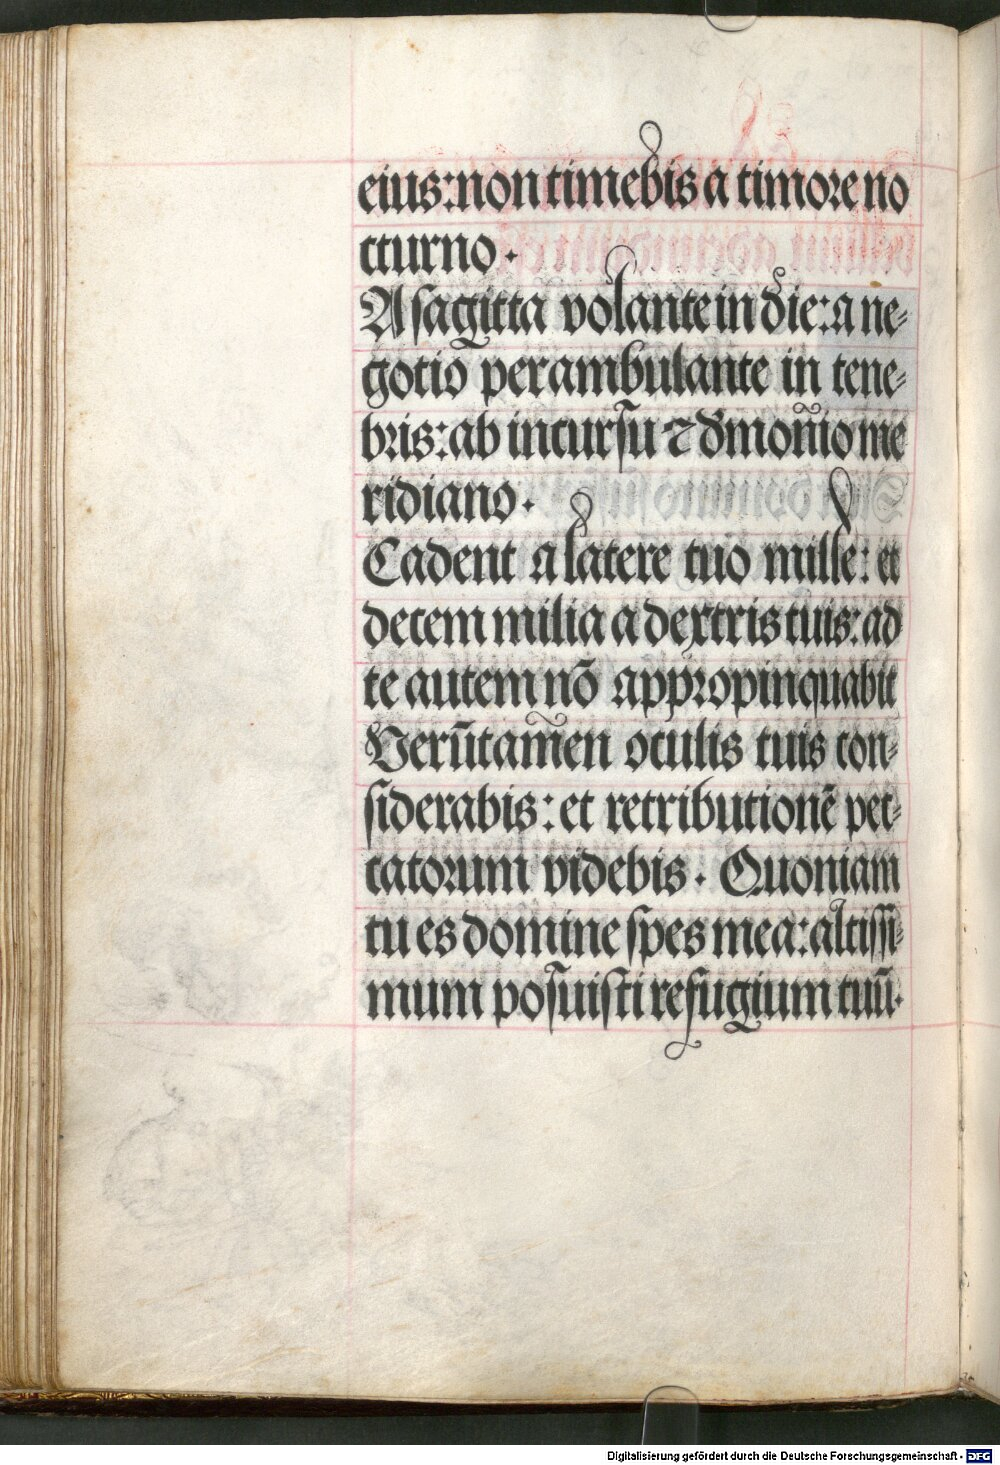 eius: non timebis a timore no
cturno.
A sagitta volante in die: a ne-
gotio perambulante in tene-
bris: ab incursu ⁊ dmon̄io me
ridiano.
Cadent a latere tuo mille: et
decem milia a dextris tuis: ad
te autem nō appropinquabit
Verūtam̄en oculis tuis con-
siderabis: et retributionē pec-
catorum videbis. Quoniam
tu es domine spes mea: altissi-
mum posuisti refugium tuū.
Digitalisierung gefördert durch die Deutsche Forschungsgemeinschaft - DFG